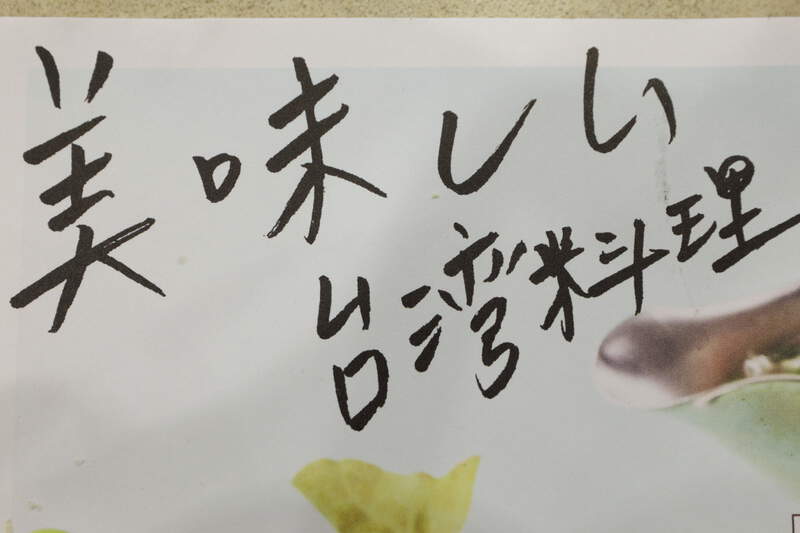 美味しい
台湾料理